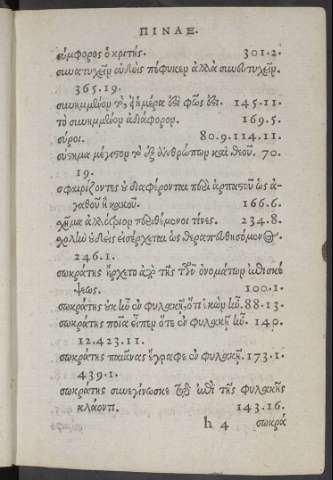 ΠΙΝΑΞ.
σύμφορος ὁ κριτής. 301.2.
συνατυχεῖν οὐδεὶς πέφυκεν ἀλλὰ συνευτυχεῖν.
365.19.
συνημμένον τὸ, εἰ ἡμέρα ἐστὶ φῶς ἐστι. 145.11.
τὸ συνημμένον ἀδιάφορον. 169.5.
σύροι. 80.9.114.11.
σύστημα μέγιστον τὸ ἐξ ἀνθρώπων καὶ θεοῦ. 70.
19.
σφαιρίζοντες οὐ διαφέρονται περὶ ἁρπαστοῦ ὡς ἀ-
γαθοῦ ἢ κακοῦ. 166.6.
σχῆμα ἀλλότριον περιθέμενοι τινές. 234.8.
σχολὴν οὐδεὶς εἰσέρχεται ὡς θεραπευθησόμενος.
246.1.
σωκράτης ἤρχετο ἀπὸ τῆς τῶν ὀνομάτων ἐπισκέ
ψεως. 100.1.
σωκράτης οὐκ ἦν ἐν φυλακῇ, ὅτι ἑκὼν ἦν. 88.13.
σωκράτης ποῖα εἶπεν ὅτε ἐν φυλακῇ ἦν. 140.
12.423.11.
σωκράτης παιᾶνας ἔγραφε ἐν φυλακῇ. 173.1.
439.1.
σωκράτης συνεγίνωσκε τῷ ἐπὶ τῆς φυλακῆς
κλάοντι. 143.16.
h 4 σωκρά